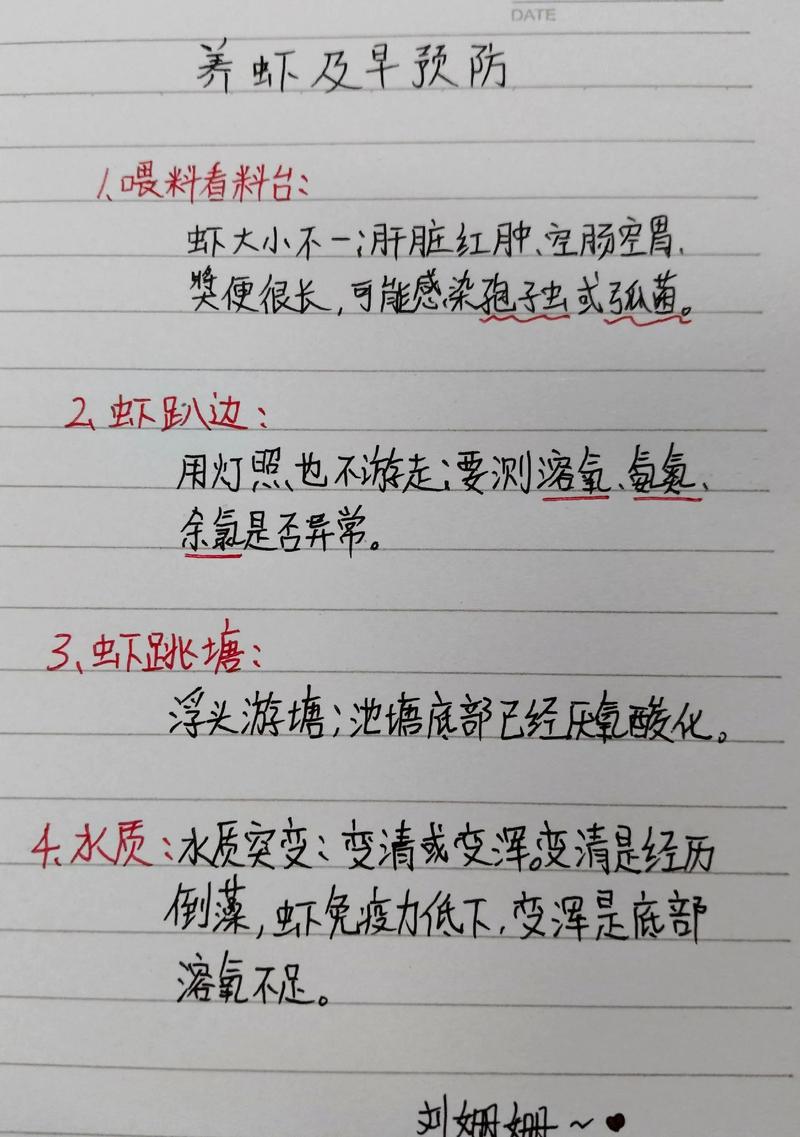 DATE
养虾及早预防
1、喂料看料台:
虾大小不一;肝脏红肿、空肠空胃、
粪便很长,可能感染孢子虫或弧菌。
2、虾趴边:
用灯照也不游走;要测溶氧、氨氮、
余氯是否异常。
3、虾跳塘:
浮头游塘;池塘底部已经厌氧酸化。
4、水质:水质突变:变清或变浑。变清是经历
倒藻,虾免疫力低下,变浑是底部
溶氧不足。
刘姗姗~♥